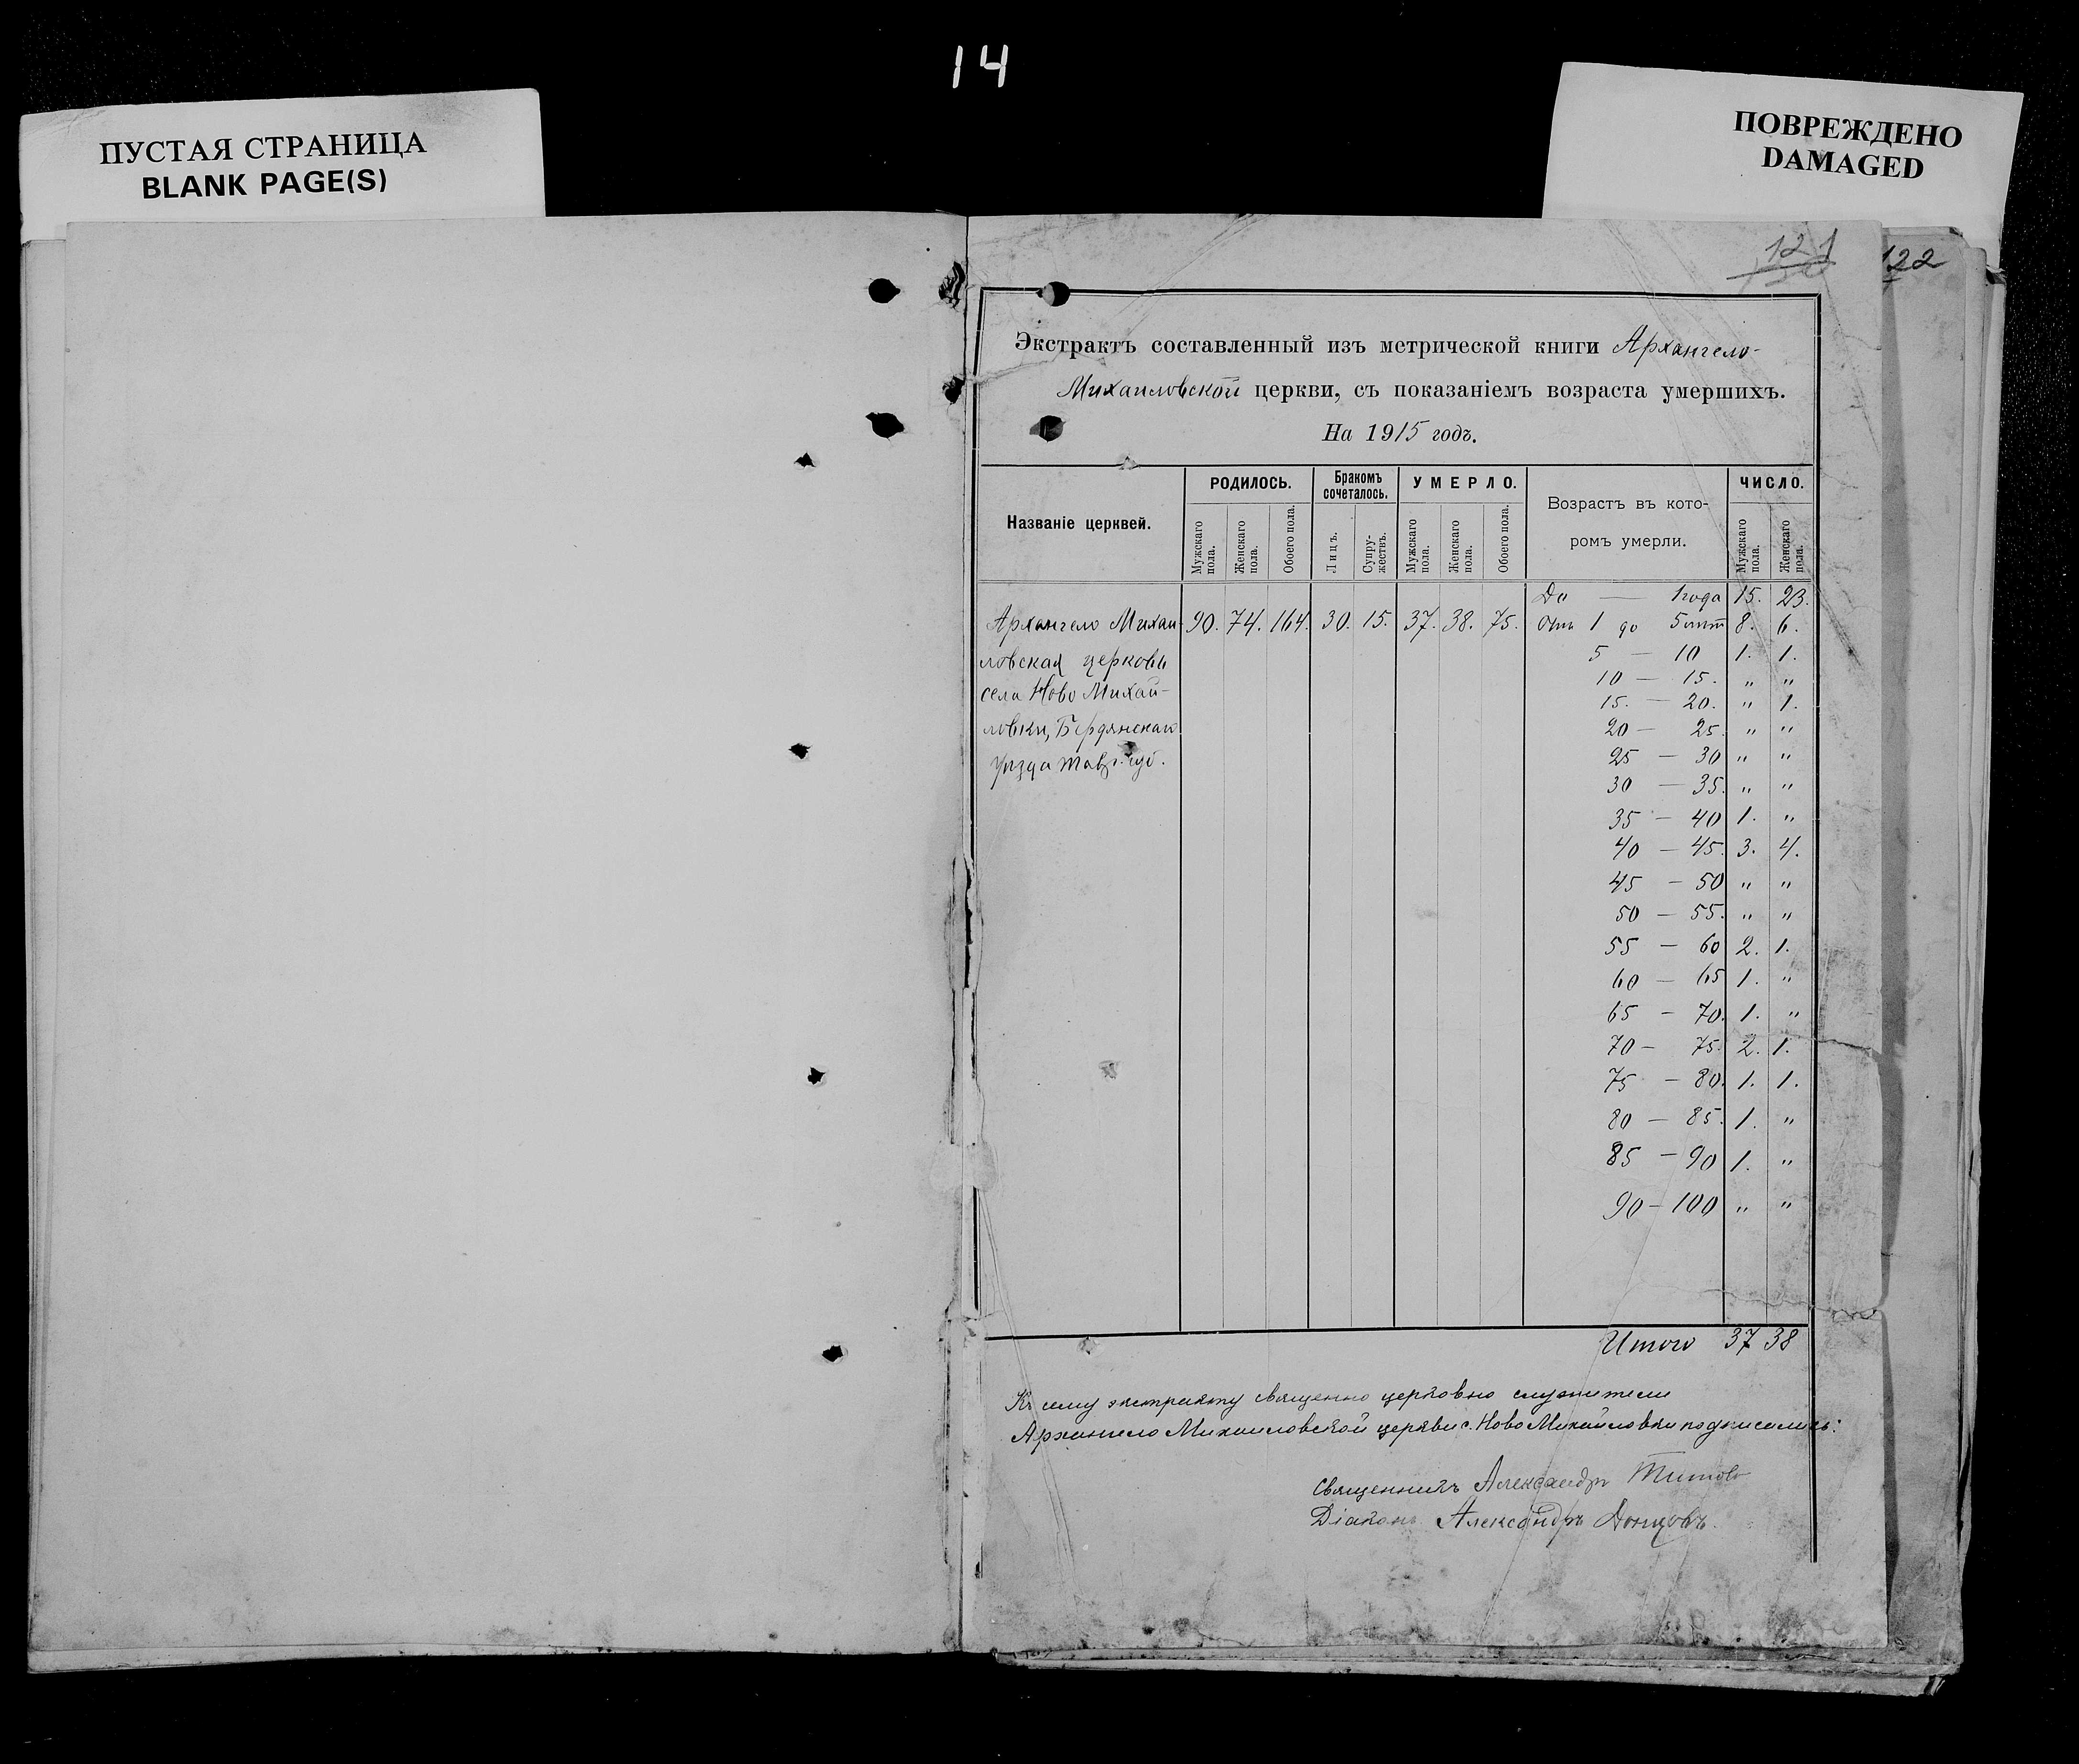 14
ПУСТАЯ СТРАНИЦА
BLANK PAGE(S)
ПОВРЕЖДЕНО
DAMAGED
121
122
Экстрактъ составленный изъ метрической книги Архангело-
Михаиловской церкви, съ показаніемъ возраста умершихъ.
На 1915 годъ.
Названіе церквей.
РОДИЛОСЬ.
Бракомъ сочеталось.
УМЕРЛО.
Возрастъ въ кото-
ромъ умерли.
ЧИСЛО.
Мужскаго пола.
Женскаго пола.
Обоего пола.
Лицъ.
Супру-жествъ.
Мужскаго пола.
Женскаго пола.
Обоего пола.
Мужскаго пола.
Женскаго пола.
До — 1 года 15. 23.
Архангело Михаи- 90. 74. 164. 30. 15. 37. 38. 75. Отъ 1 до 5 лѣтъ 8. 6.
ловская церковь 5 — 10 1. 1.
села Ново Михай- 10 — 15. " "
15. — 20. " 1.
ловки, Бердянскаго 20 — 25. " "
уѣзда Тавр. губ. 25 — 30 " "
30 — 35. " "
35 — 40 1. "
40 — 45. 3. 4.
45 — 50 " "
50 — 55. " "
55 — 60 2. 1.
60 — 65 1. "
65 — 70. 1. "
70 — 75. 2. 1.
75 — 80. 1. 1.
80 — 85. 1. "
85 — 90 1. "
90 — 100 " "
Итого 37 38
Къ сему экстракту священно церковно служители
Архангело Михаиловской церкви с. Ново Михайловки подписались:
Священникъ Александръ Титовъ
Діаконъ Александръ Донцовъ.